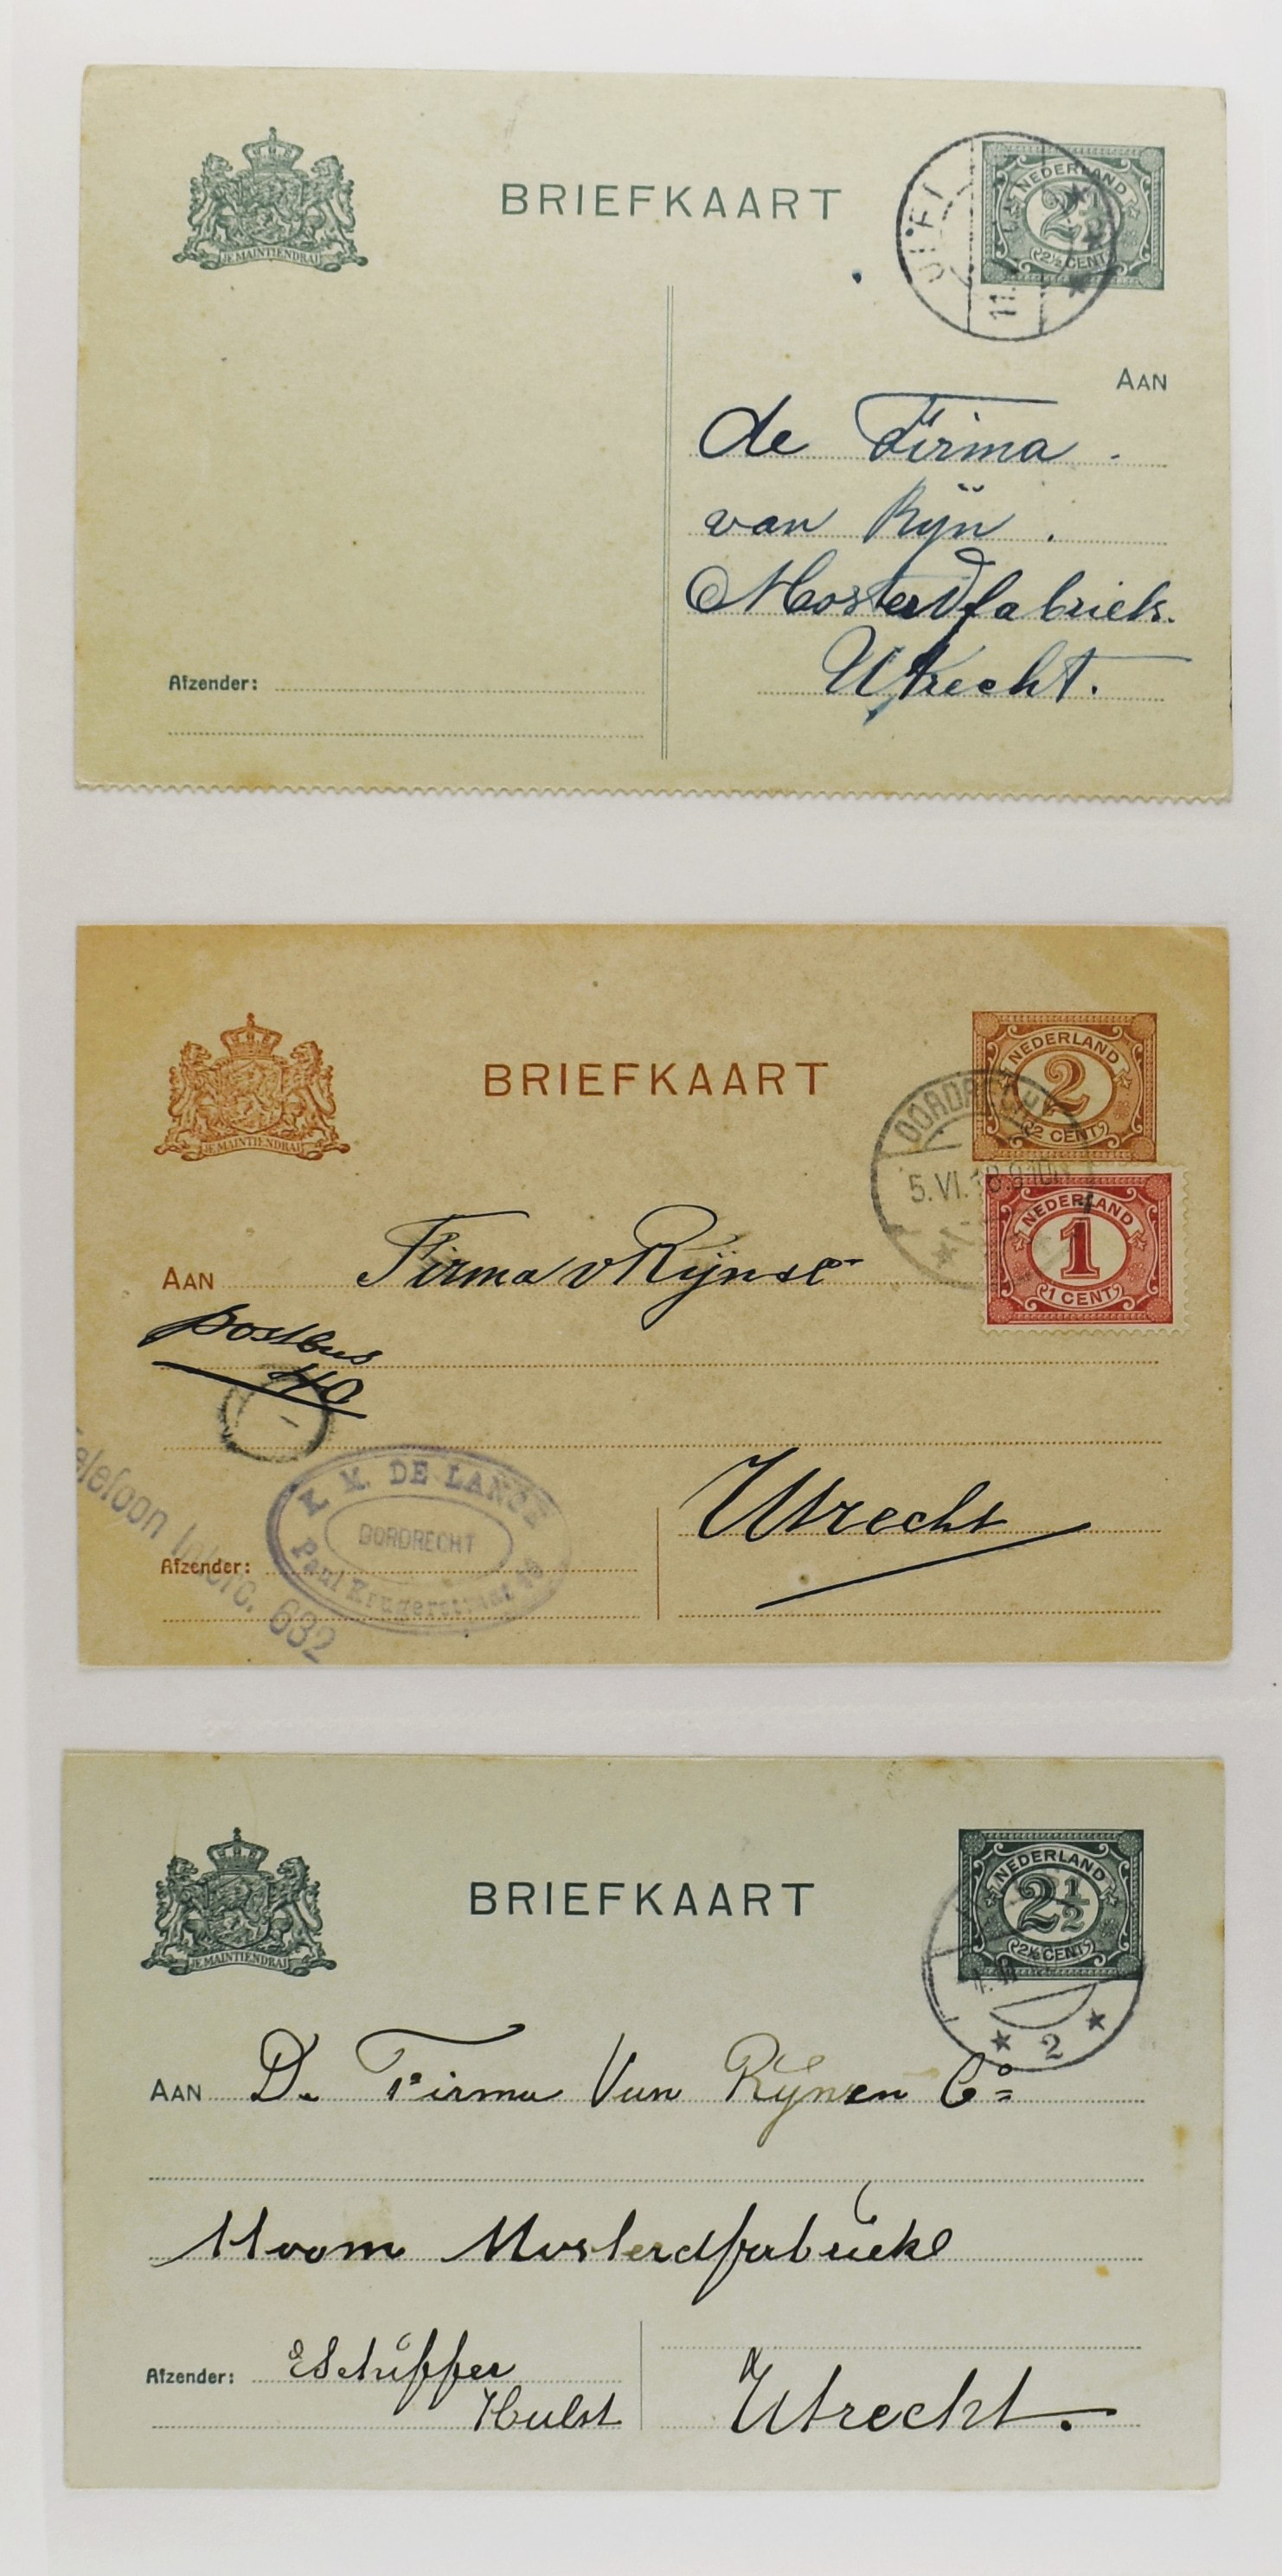 JE MAINTIENDRAI
BRIEFKAART
NEDERLAND
2½
2½ CENT
11.
AAN
de Firma
van Rijn
Mosterdfabriek.
Utrecht.
Afzender:
JE MAINTIENDRAI
BRIEFKAART
NEDERLAND
2
2 CENT
DORDRECHT
5.VI.18.
NEDERLAND
1
1 CENT
AAN Firma v Rijn
postbus
40
DE LANGE
DORDRECHT
Paul Krugerstraat
Telefoon Interc. 632
Utrecht
Afzender:
JE MAINTIENDRAI
BRIEFKAART
NEDERLAND
2½
2½ CENT
2
AAN De Firma Van Rijn en Co
Stoom Mosterdfabriek
Afzender: Schiffer
Hulst
Utrecht.